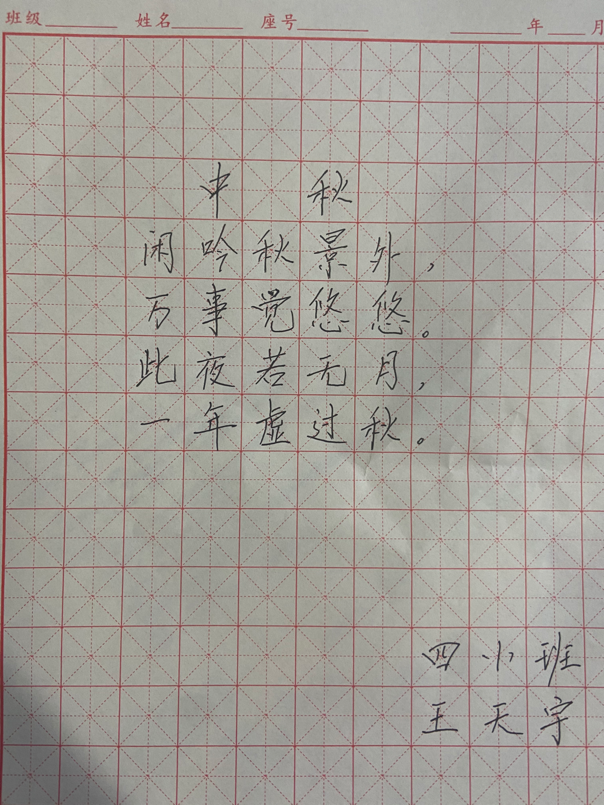 班级 姓名 座号 年 月
中秋
闲吟秋景外，
万事觉悠悠。
此夜若无月，
一年虚过秋。
四小班
王天宇